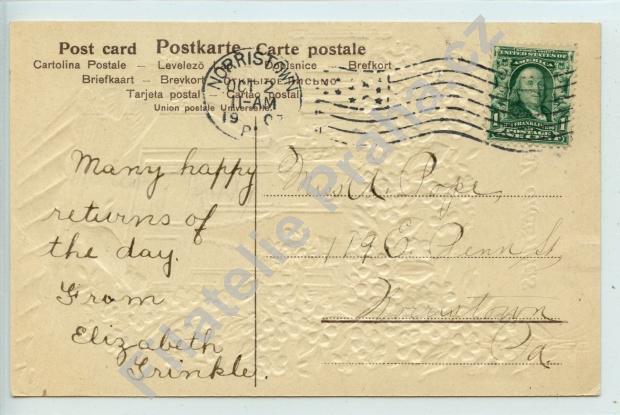 Post card Postkarte Carte postale
Cartolina Postale – Levelező – Dopisnice – Brefkort
Briefkaart – Brevkort – ОТКРЫТОЕ ПИСЬМО
Tarjeta postal – Cartao postal
Union postale Universelle
NORRISTOWN
OCT
11-AM
1907
PA
UNITED STATES OF
AMERICA
FRANKLIN
1 POSTAGE 1
ONE CENT
Many happy
returns of
the day.
From
Elizabeth
Trinkle.
A. Pope,
119 E. Penn St
Norristown
Pa.
Filatelie Praha.cz